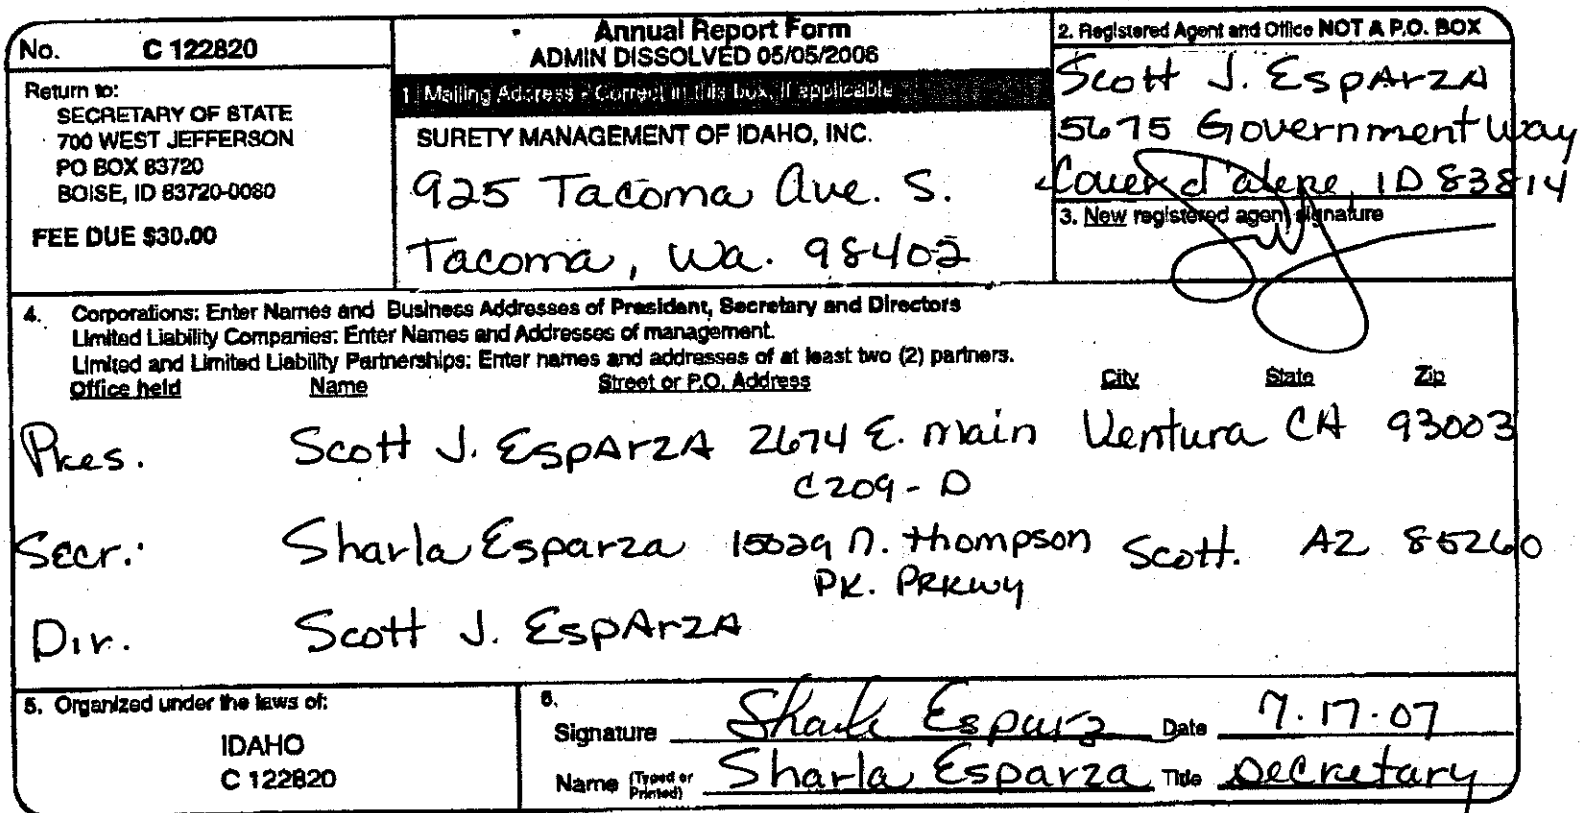 No. C 122820
Return to:
SECRETARY OF STATE
700 WEST JEFFERSON
PO BOX 83720
BOISE, ID 83720-0080
FEE DUE $30.00
Annual Report Form
ADMIN DISSOLVED 05/05/2006
1. Mailing Address - Correct in this box, if applicable
SURETY MANAGEMENT OF IDAHO, INC.
925 Tacoma Ave. S.
Tacoma, Wa. 98402
2. Registered Agent and Office NOT A P.O. BOX
Scott J. EspArzA
5675 Government Way
Couer d'alene, ID 83814
3. New registered agent signature
4. Corporations: Enter Names and Business Addresses of President, Secretary and Directors
Limited Liability Companies: Enter Names and Addresses of management.
Limited and Limited Liability Partnerships: Enter names and addresses of at least two (2) partners.
Office held Name Street or P.O. Address City State Zip
Pres. Scott J. EspArzA 2674 E. Main Ventura CA 93003
C209-D
Secr.: Sharla Esparza 15029 N. thompson Scott. AZ 85260
PK. PRKWY
Dir. Scott J. EspArzA
5. Organized under the laws of:
IDAHO
C 122820
6.
Signature Sharla Esparza Date 7.17.07
Name (Typed or Printed) Sharla Esparza Title Secretary